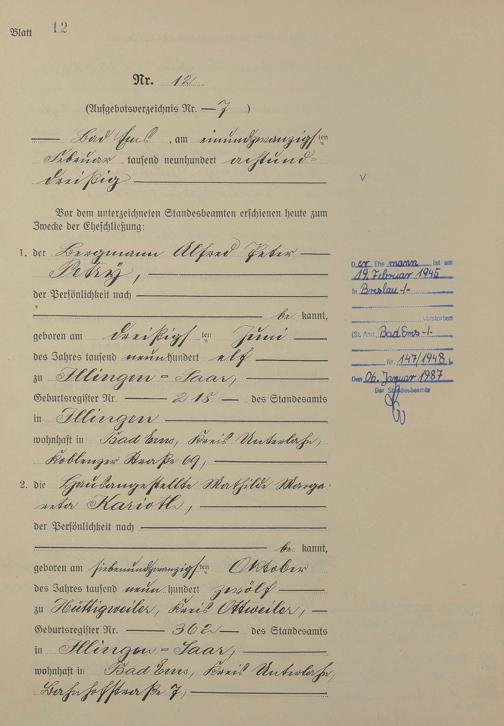 Blatt 12
Nr. 12
(Aufgebotsverzeichnis Nr. — 7 )
— Bad Ems, am einundzwanzigsten
Februar tausend neunhundert achtund-
dreißig —
Vor dem unterzeichneten Standesbeamten erschienen heute zum
Zwecke der Eheschließung:
1. der Bergmann Alfred Peter —
Petry, —
der Persönlichkeit nach —
— be kannt,
geboren am dreißigsten Juni —
des Jahres tausend neunhundert elf —
zu Illingen-Saar, —
Geburtsregister Nr. — 215 — des Standesamts
in Illingen —
wohnhaft in Bad Ems, Kreis Unterlahn,
Koblenzer Straße 69, —
2. die Hausangestellte Mathilde Marga-
reta Kariotl, —
der Persönlichkeit nach —
— be kannt,
geboren am siebenundzwanzigsten Oktober
des Jahres tausend neunhundert zwölf —
zu Hüttigweiler, Kreis Ottweiler, —
Geburtsregister Nr. — 362 — des Standesamts
in Illingen-Saar, —
wohnhaft in Bad Ems, Kreis Unterlahn,
Bahnhofstraße 7, —
v
Der Ehemann ist am
19. Februar 1945
in Breslau -/-
verstorben
(St. Amt Bad Ems -/-
Nr. 147/1948)
Den 06. Januar 1987
Der Standesbeamte